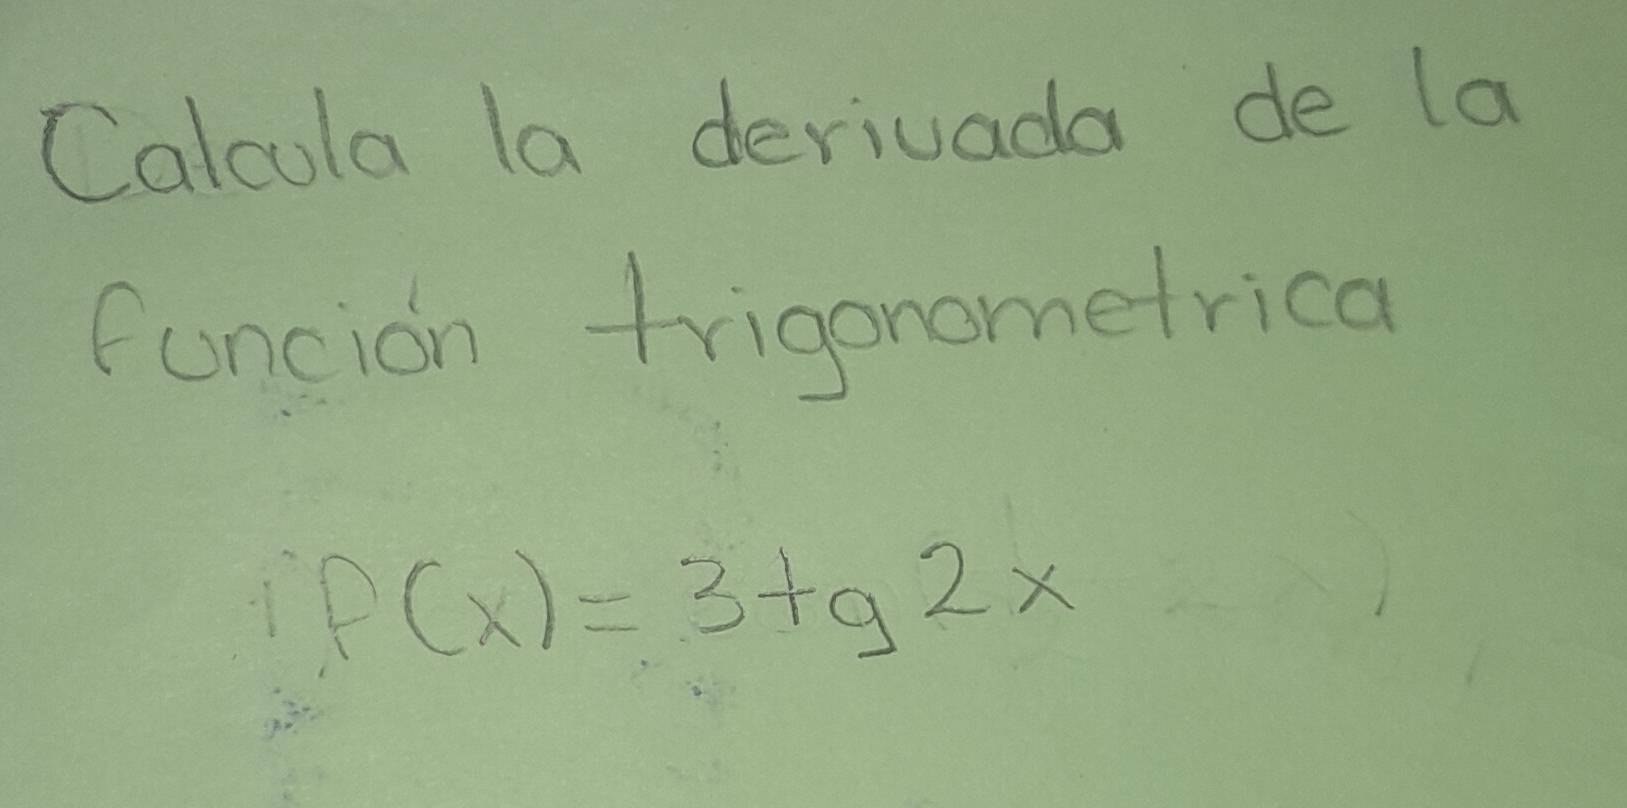 Calcula la derivada de la
función trigonometrica
f(x) = 3tg 2x